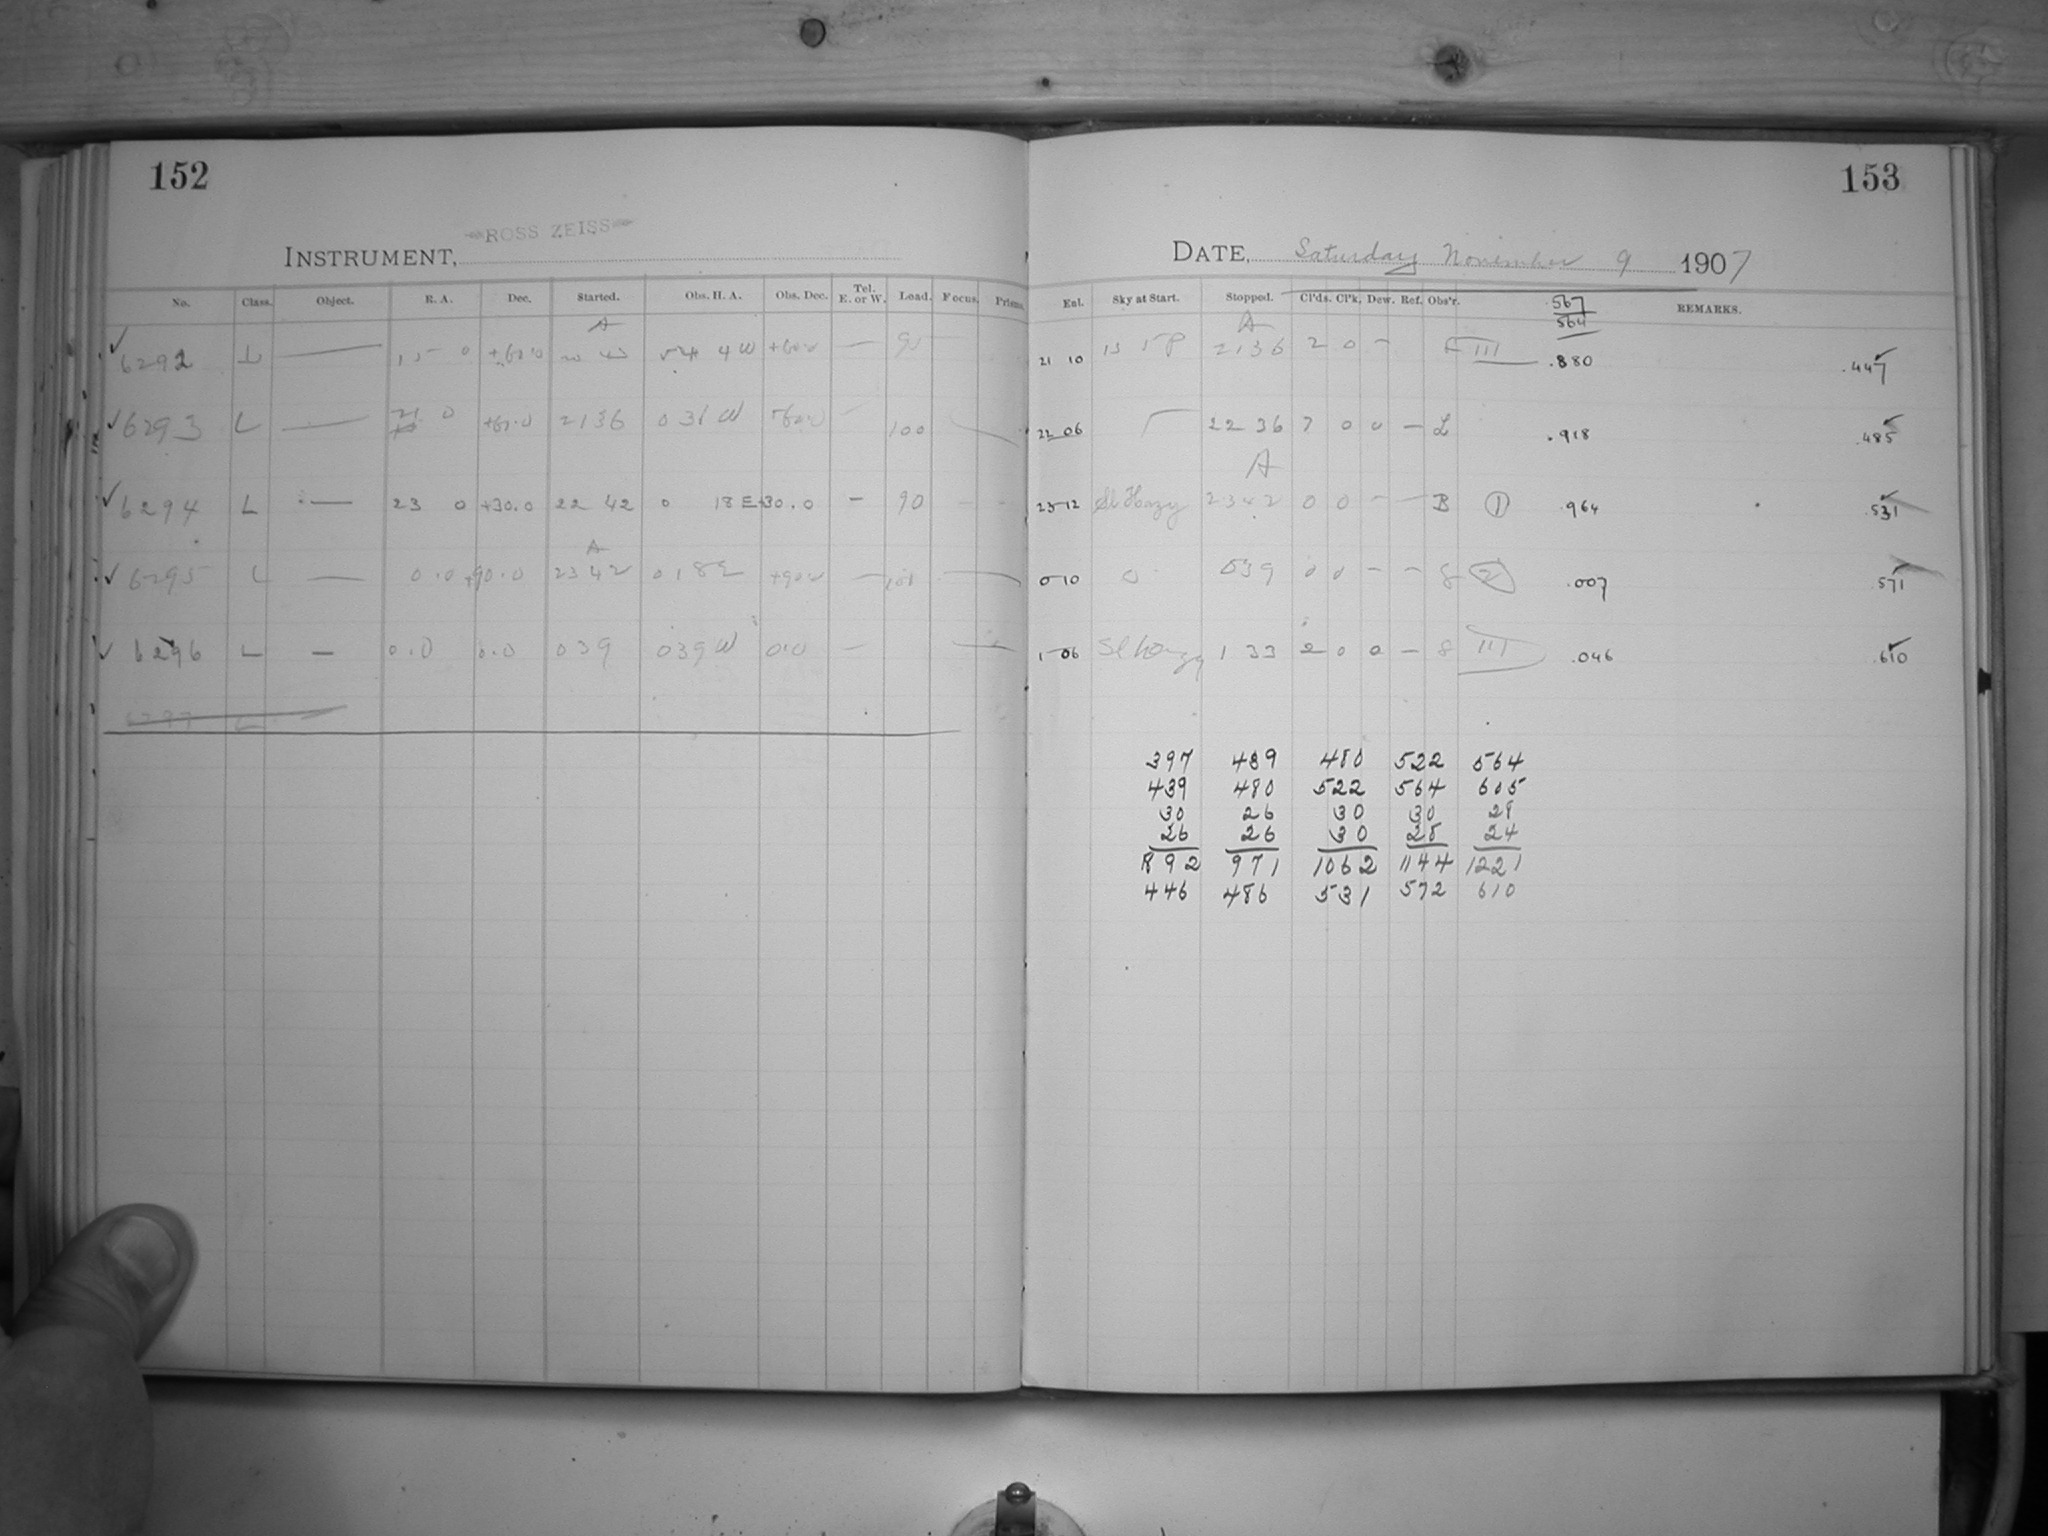 152
ROSS ZEISS
INSTRUMENT,
No. Class. Object. R. A. Dec. Started. Obs. H. A. Obs. Dec. Tel. E. or W. Lead. Focus. Prisms.
A
6292 L — +60.0 4 W +60.0 — 90
6293 L — 21 0 +60.0 2136 0 36 W +60.0 — 100
6294 L — 23 0 +30.0 22 42 0 18 E +30.0 — 90 – –
A
6295 L — 0.0 +90.0 2342 0 18 E +90.0 —
6296 L — 0.0 0.0 039 039 W 0.0 —
6297 L
153
DATE, Saturday November 9 1907
Ent. Sky at Start. Stopped. Cl'ds. Cl'k. Dew. Ref. Obs'r. REMARKS.
567
564
A
21 10 2136 2 0 – III .880 .447
22 06 22 36 7 0 0 – L .918 .485
A
23 12 Sl Hazy 2342 0 0 – – B 1 .964 .531
0 10 0 039 0 0 – – 8 2 .007 .571
1 06 Sl hazy 1 33 2 0 0 – 8 III .046 .610
397 439 480 522 564
439 480 522 564 605
30 26 30 30 28
26 26 30 28 24
892 971 1062 1144 1221
446 486 531 572 610